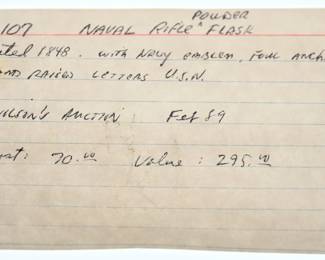 107 NAVAL RIFLE ^ POWDER FLASK
ated 1848. WITH NAVY EMBLEM, FOUL ANCH
AND RAISED LETTERS U.S.N.
WILSON'S AUCTION Feb 89
ost: 70.00 Value: 295.00